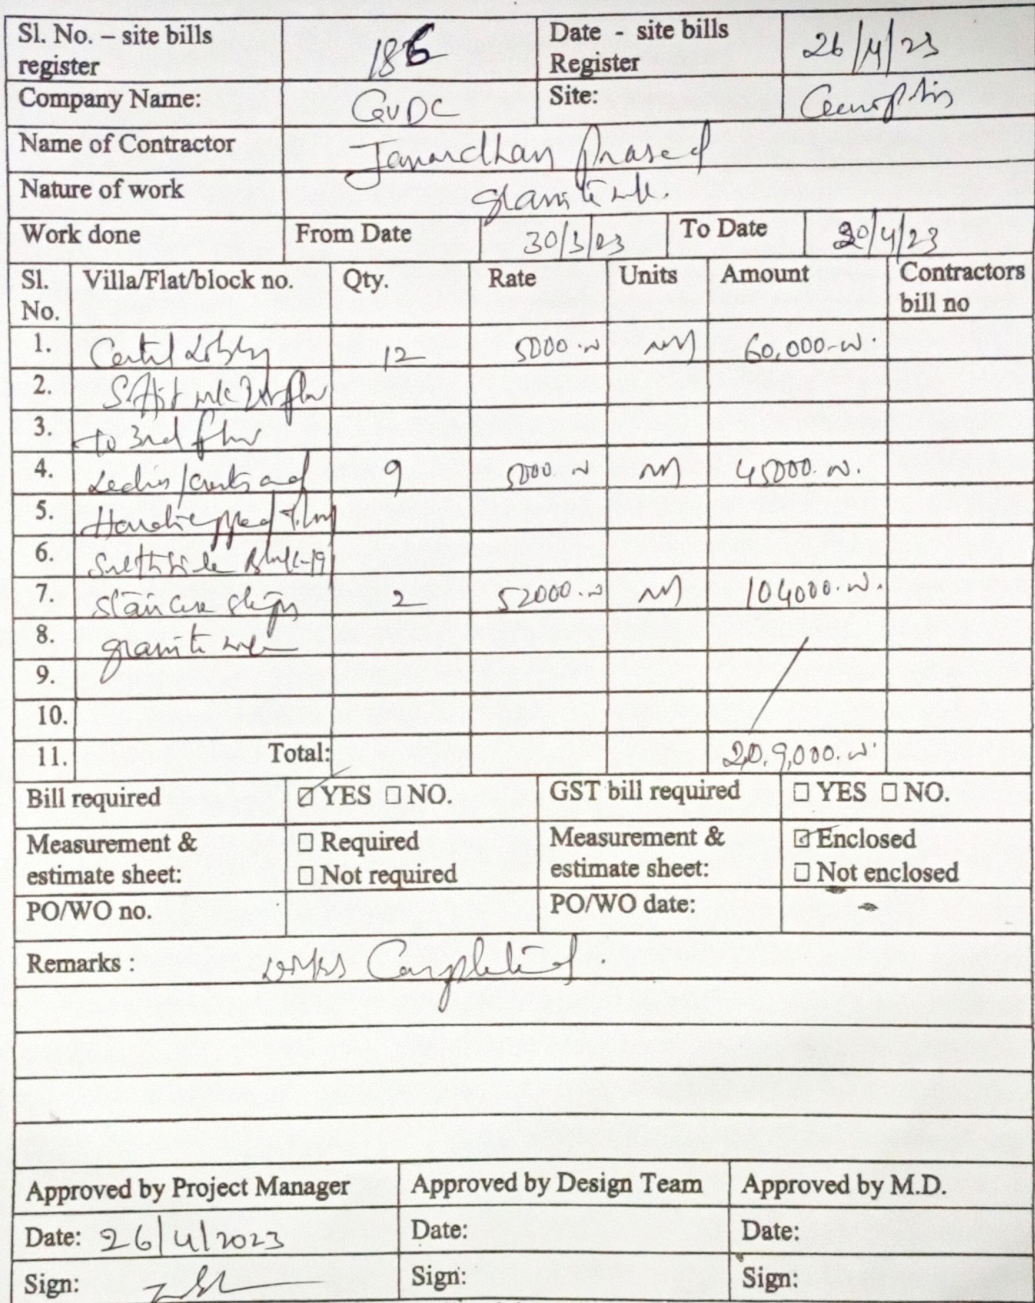 Sl. No. – site bills register 186 Date - site bills Register 26/4/23
Company Name: GVDC Site:
Name of Contractor Janardhan Prasad
Nature of work granite wk.
Work done From Date 30/3/23 To Date 20/4/23
Sl. No. Villa/Flat/block no. Qty. Rate Units Amount Contractors bill no
1. Lobby 12 5000 60,000
2.
3. to 3rd
4. and 9 5000 45000
5.
6.
7. staircase steps 2 52000 104000
8. granite
9.
10.
11. Total: 2,0,9,000
Bill required ☑ YES ☐ NO. GST bill required ☐ YES ☐ NO.
Measurement & estimate sheet: ☐ Required ☐ Not required Measurement & estimate sheet: ☑ Enclosed ☐ Not enclosed
PO/WO no. PO/WO date: -
Remarks : works Completed.
Approved by Project Manager Approved by Design Team Approved by M.D.
Date: 26/4/2023 Date: Date:
Sign: Sign: Sign: